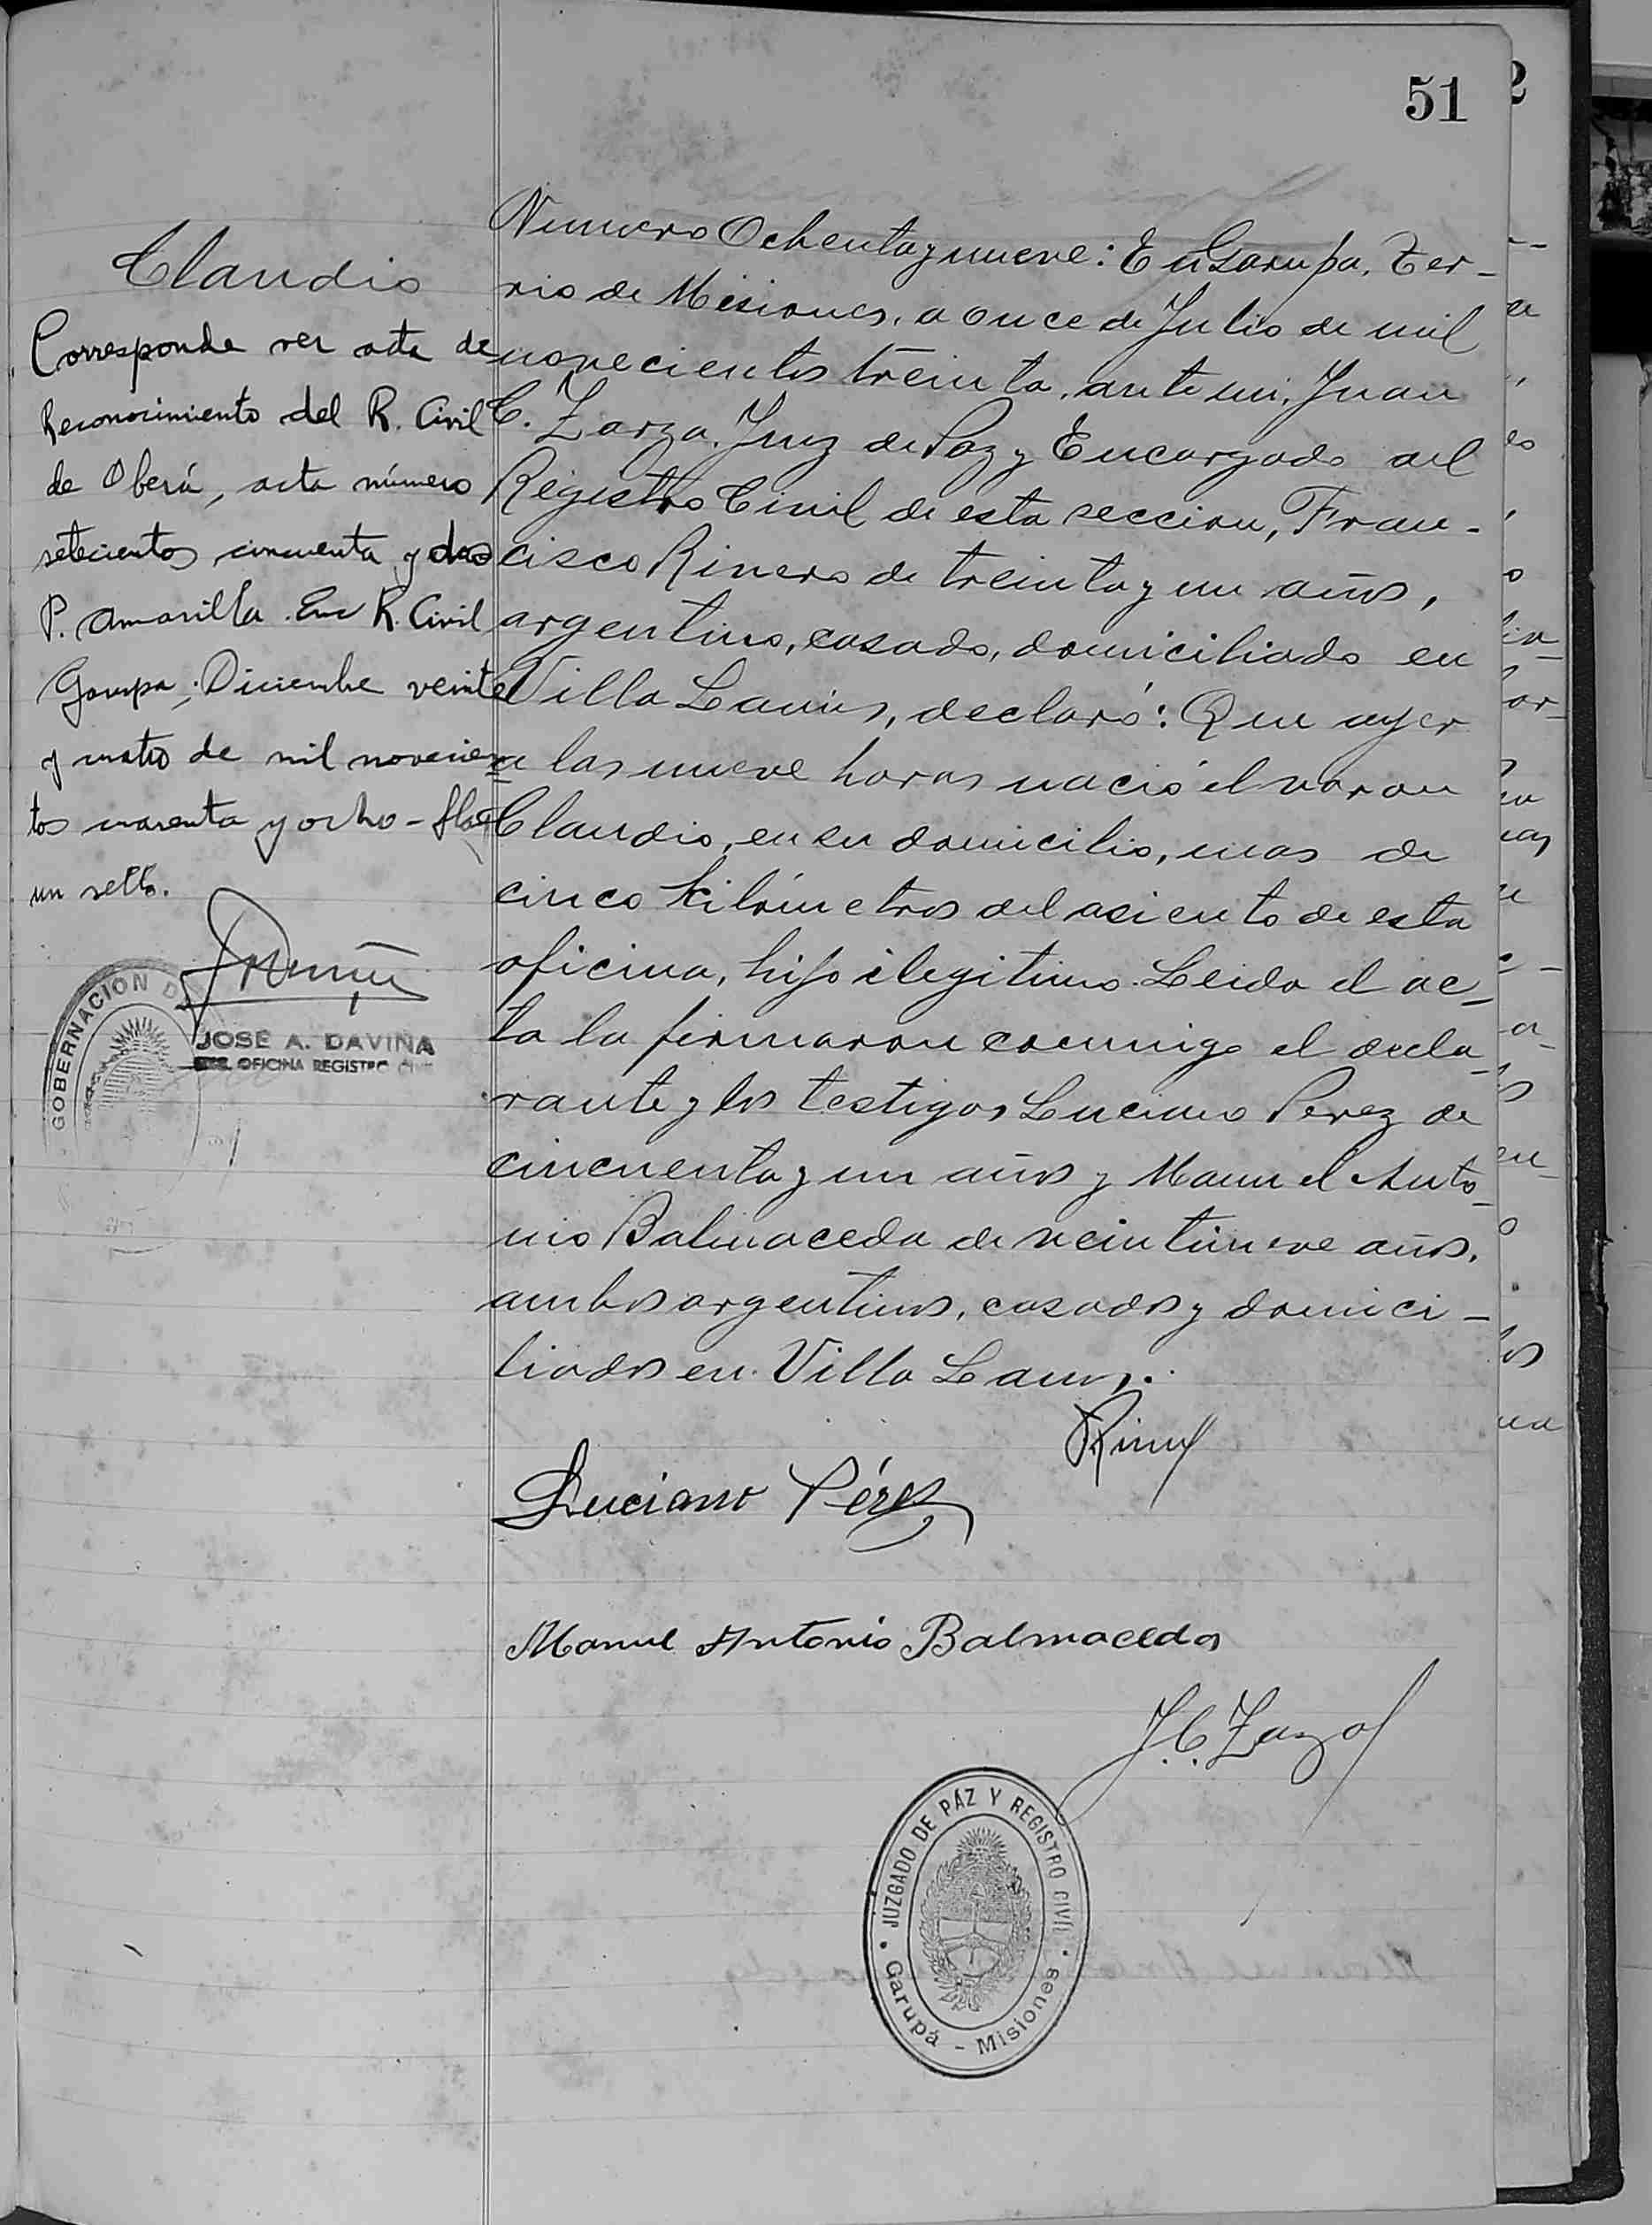 51
Claudio
Corresponde ver acta de
Reconocimiento del R. Civil
de Oberá, acta número
setecientos cincuenta y dos
P. Amarilla. Enc R. Civil
Garupa, Diciembre veinte
y cuatro de mil novecien
tos cuarenta y ocho - Hay
un sello.
GOBERNACION D
JOSE A. DAVIÑA
OFICINA REGISTRO CIVIL
Numero Ochenta y nueve: En Garupa, Ter-
rio de Misiones, a once de Julio de mil
novecientos treinta, ante mi, Juan
C. Zarza, Juez de Paz y Encargado del
Registro Civil de esta seccion, Fran-
cisco Rivero de treinta y un años,
argentino, casado, domiciliado en
Villa Lanús, declaró: Que ayer
a las nueve horas nació el varon
Claudio, en su domicilio, mas de
cinco kilómetros del asiento de esta
oficina, hijo ilegitimo. Leida el ac-
ta la firmaron conmigo el decla-
rante y los testigos Luciano Perez de
cincuenta y un años y Manuel Anto-
nio Balmaceda de veintinueve años,
ambos argentinos, casados y domici-
liados en Villa Lanus.
Luciano Pérez
Manuel Antonio Balmaceda
J. C. Zarza
JUZGADO DE PÁZ Y REGISTRO CIVIL
Garupá - Misiones